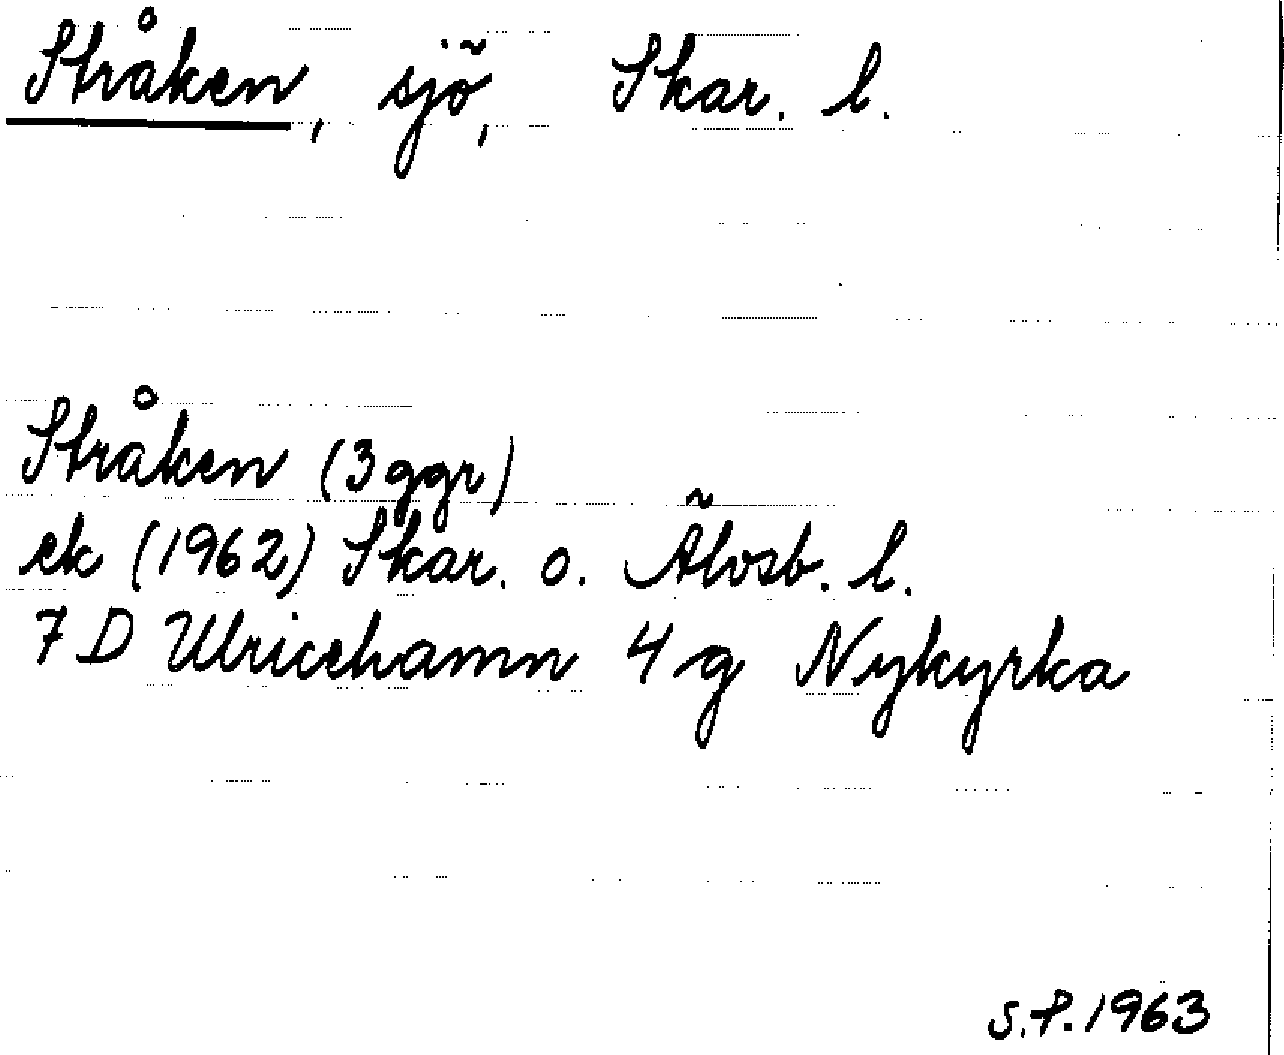 Stråken, sjö, Skar. l.
Stråken (3 ggr)
ek (1962) Skar. o. Älvsb. l.
7 D Ulricehamn 4 g Nykyrka
S.P. 1963